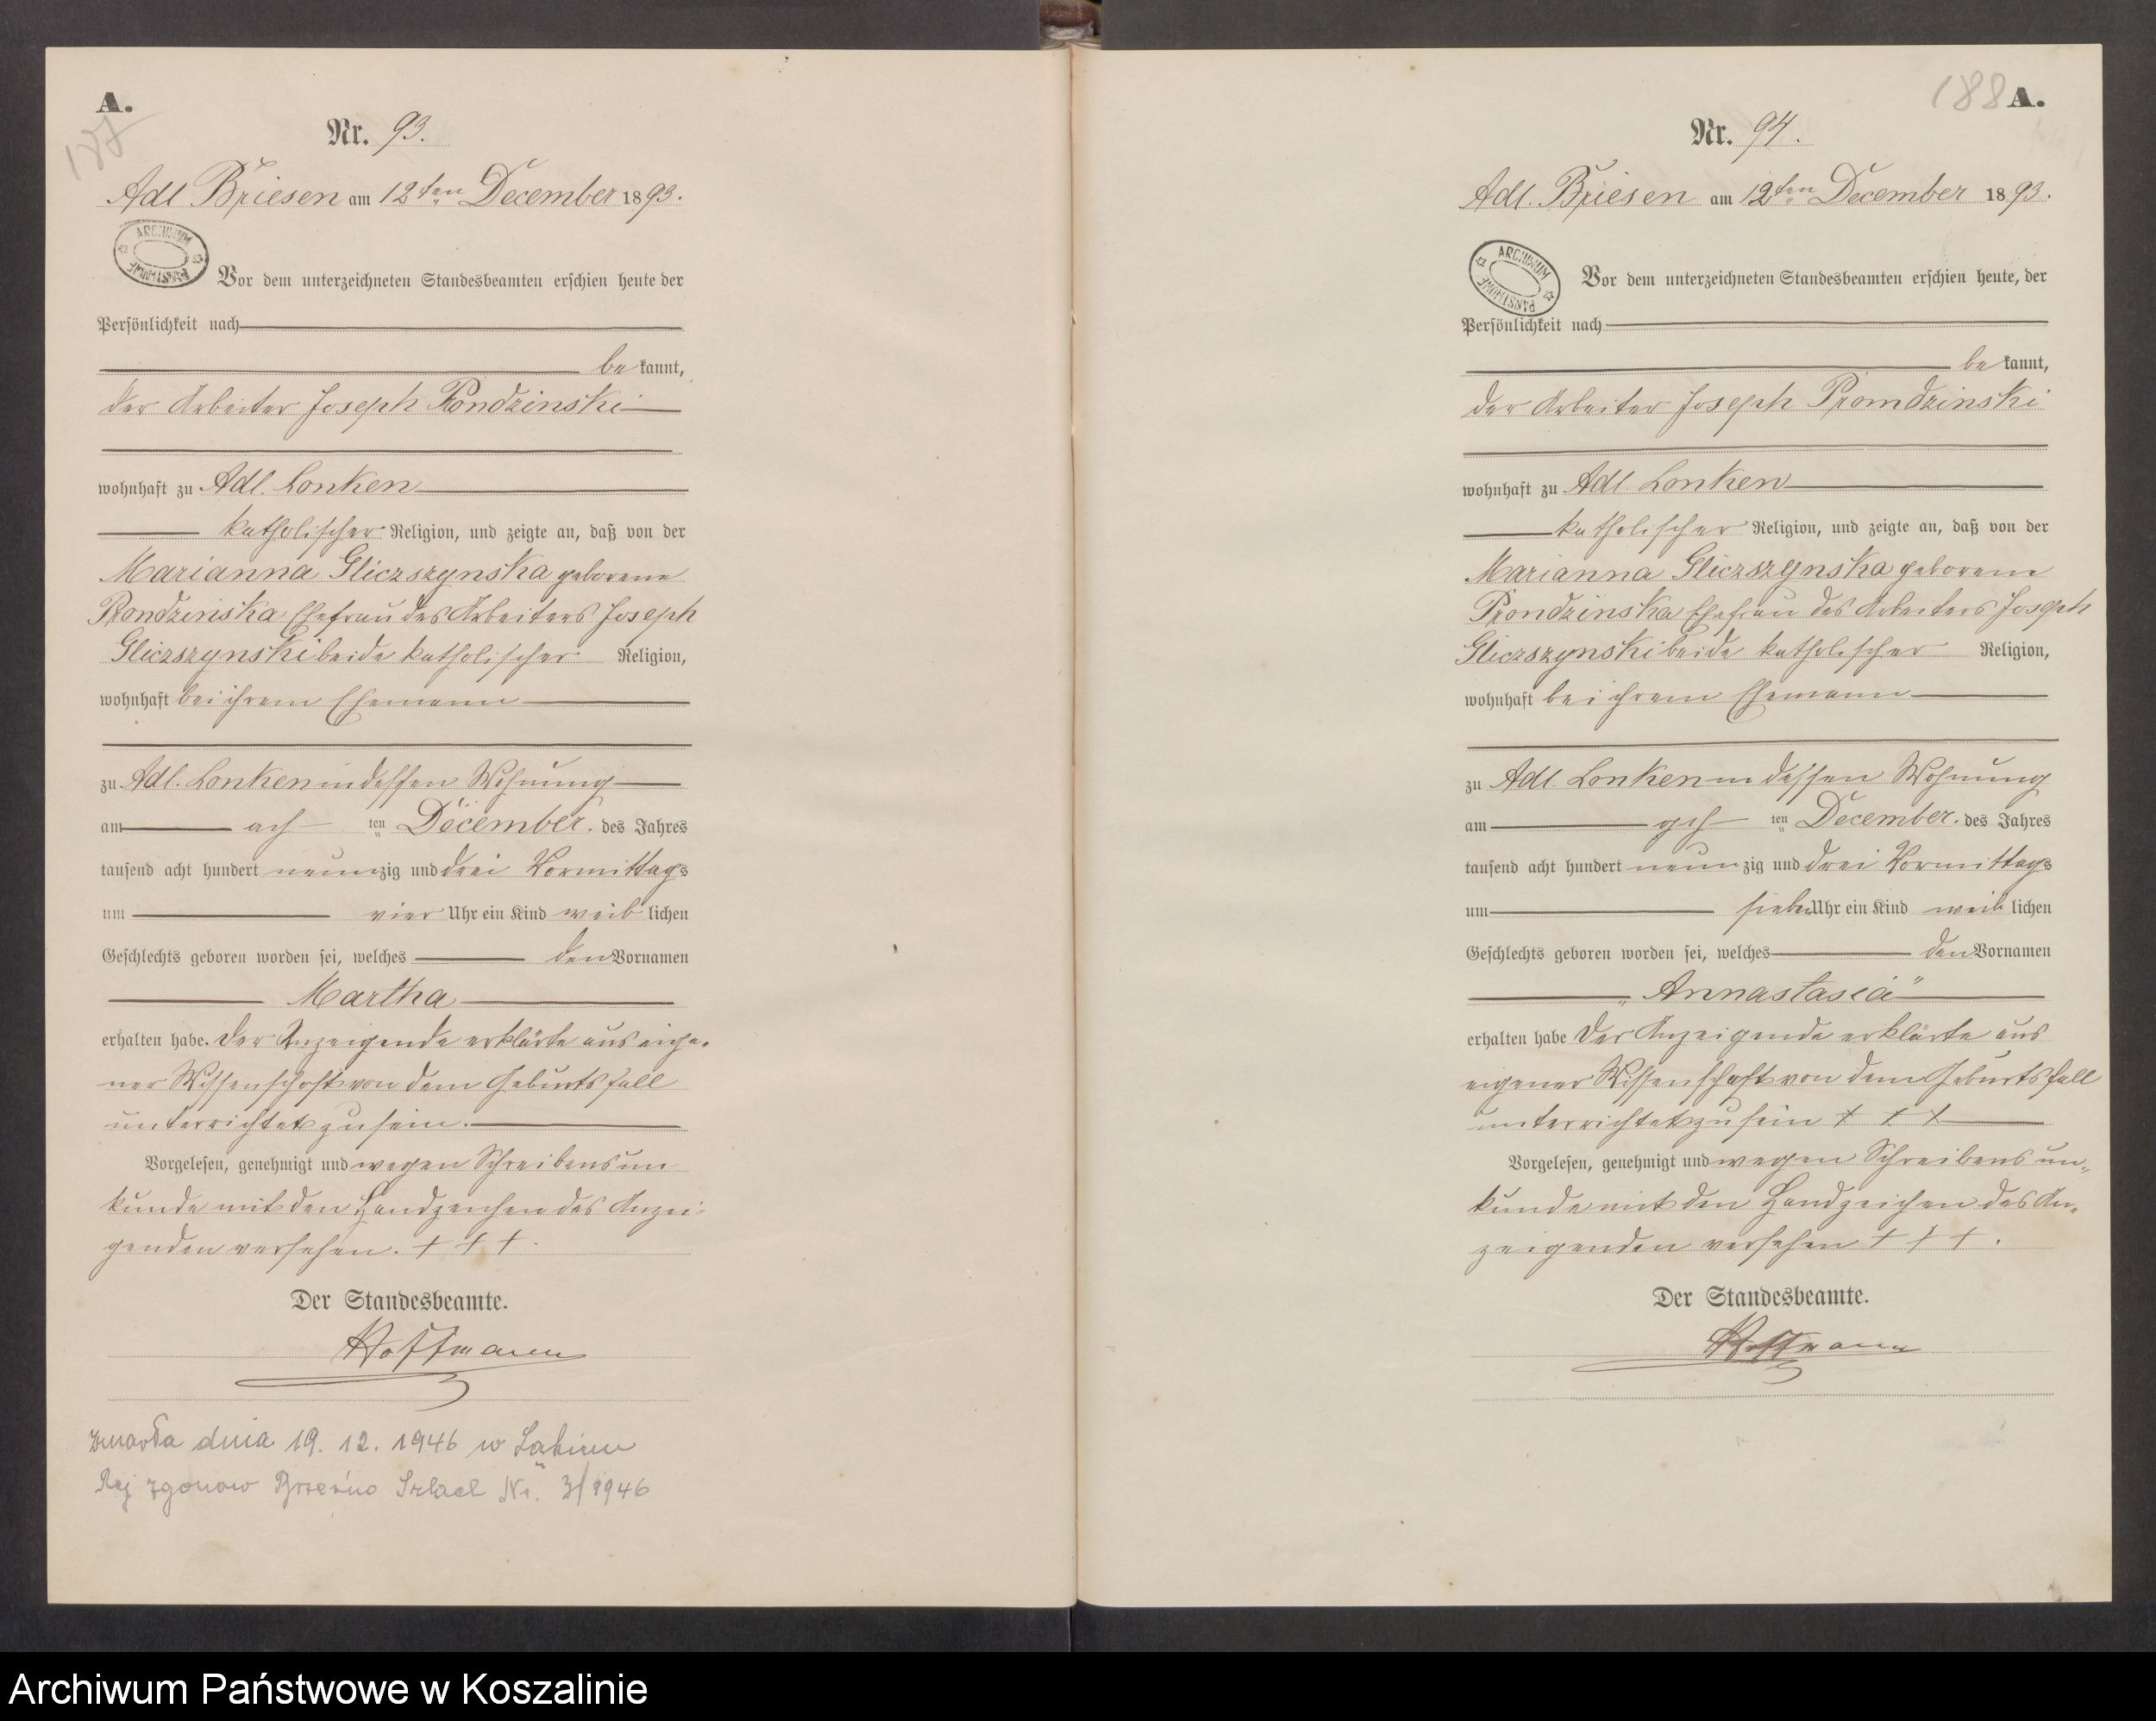 A.
187
Nr. 93.
Adl Briesen am 12ten December 1893.
ARCHIWUM PAŃSTWOWE
Vor dem unterzeichneten Standesbeamten erschien heute der
Persönlichkeit nach
be kannt,
der Arbeiter Joseph Rondzinski
wohnhaft zu Adl. Lonken
katholischer Religion, und zeigte an, daß von der
Marianna Gliczszynska geborene
Rondzinska Ehefrau des Arbeiters Joseph
Gliczszynski beide katholischer Religion,
wohnhaft bei ihrem Ehemann
zu Adl. Lonken in dessen Wohnung
am ach ten December. des Jahres
tausend acht hundert neunzig und drei Vormittags
um vier Uhr ein Kind weib lichen
Geschlechts geboren worden sei, welches den Vornamen
Martha
erhalten habe. Der Anzeigende erklärte aus eige-
ner Wissenschaft von dem Geburtsfall
unterrichtet zu sein.
Vorgelesen, genehmigt und wegen Schreibensun
kunde mit den Handzeichen des Anzei-
genden versehen. + + +.
Der Standesbeamte.
Hoffmann
zmarła dnia 19. 12. 1946 w
Rej zgonow Brzeźno Szlach Nr. 3/1946
188 A.
Nr. 94.
Adl. Briesen am 12ten December 1893.
ARCHIWUM PAŃSTWOWE
Vor dem unterzeichneten Standesbeamten erschien heute, der
Persönlichkeit nach
be kannt,
der Arbeiter Joseph Prondzinski
wohnhaft zu Adl. Lonken
katholischer Religion, und zeigte an, daß von der
Marianna Gliczszynska geborene
Prondzinska Ehefrau des Arbeiters Joseph
Gliczszynski beide katholischer Religion,
wohnhaft bei ihrem Ehemann
zu Adl. Lonken in dessen Wohnung
am ach ten December. des Jahres
tausend acht hundert neun zig und drei Vormittags
um sieben Uhr ein Kind weib lichen
Geschlechts geboren worden sei, welches den Vornamen
„Annastasia"
erhalten habe Der Anzeigende erklärte aus
eigener Wissenschaft von dem Geburtsfall
unterrichtet zu sein + + +
Vorgelesen, genehmigt und wegen Schreibens un-
kunde mit den Handzeichen des An-
zeigenden versehen + + +.
Der Standesbeamte.
Hoffmann
Archiwum Państwowe w Koszalinie